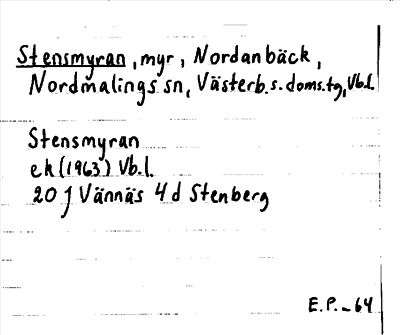 Stensmyran, myr, Nordanbäck,
Nordmalings sn, Västerb.s.doms.tg, Vb.l.
Stensmyran
ek (1963) Vb.l.
20 J Vännäs 4 d Stenberg
E.P. - 64